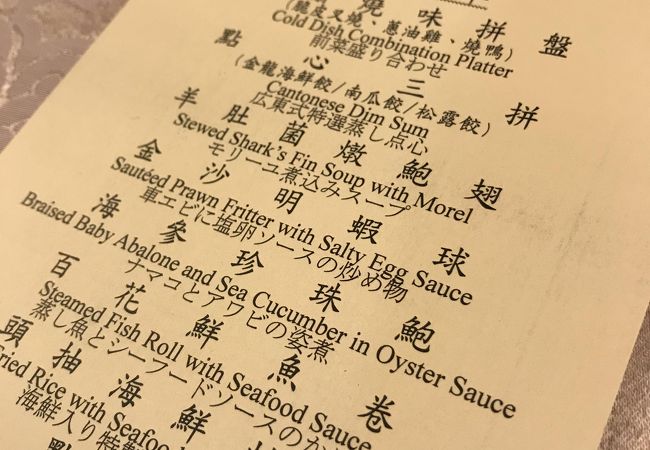 燒味拼盤
(脆皮叉燒、蔥油雞、燒鴨)
Cold Dish Combination Platter
前菜盛り合わせ
點心三拼
(金龍海鮮餃/南瓜餃/松露餃)
Cantonese Dim Sum
広東式特選蒸し点心
羊肚菌燉鮑翅
Stewed Shark's Fin Soup with Morel
モリーユ煮込みスープ
金沙明蝦球
Sautéed Prawn Fritter with Salty Egg Sauce
車エビに塩卵ソースの炒め物
海參珍珠鮑
Braised Baby Abalone and Sea Cucumber in Oyster Sauce
ナマコとアワビの姿煮
百花鮮魚卷
Steamed Fish Roll with Seafood Sauce
蒸し魚とシーフードソースのか
頭抽海鮮
Rice with Seafood
海鮮入り特製